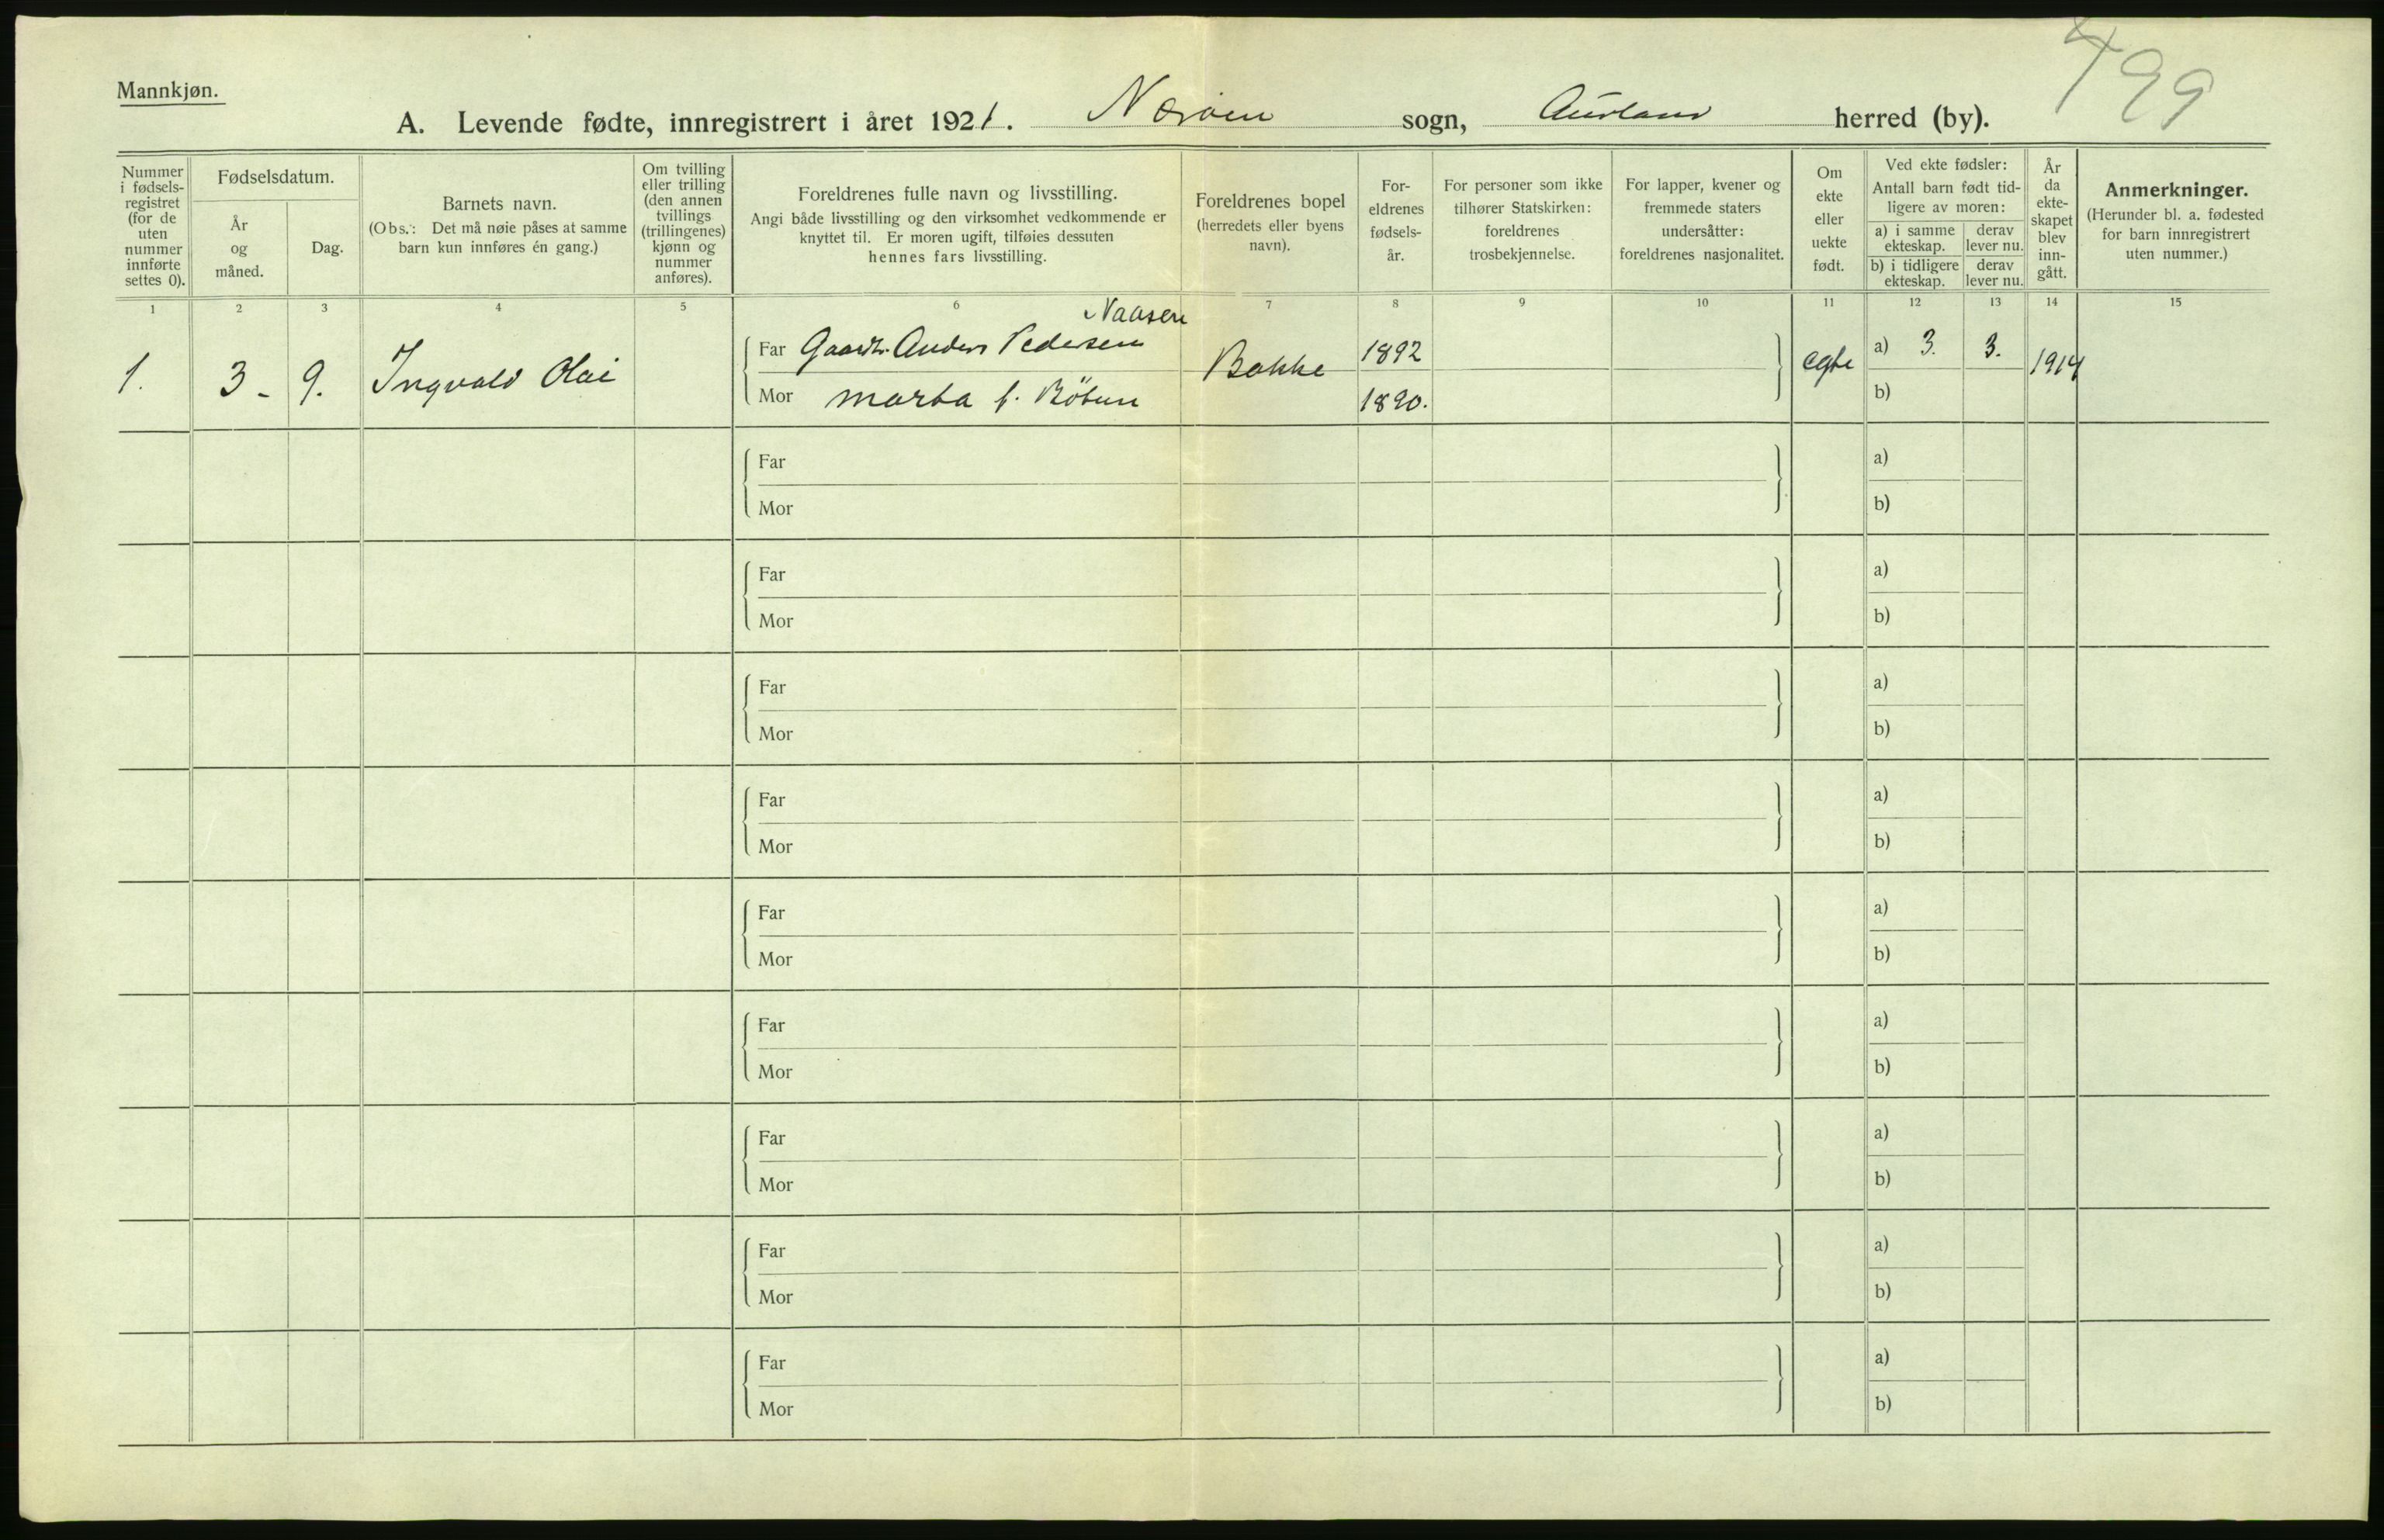 499
Mannkjøn.
A. Levende fødte, innregistrert i året 1921. Nærøen sogn, Aurland herred (by).
Nummer i fødsels-registret (for de uten nummer innførte settes 0).
Fødselsdatum.
År og måned.
Dag.
Barnets navn.
(Obs.: Det må nøie påses at samme barn kun innføres én gang.)
Om tvilling eller trilling (den annen tvillings (trillingenes) kjønn og nummer anføres).
Foreldrenes fulle navn og livsstilling.
Angi både livsstilling og den virksomhet vedkommende er knyttet til. Er moren ugift, tilføies dessuten hennes fars livsstilling.
Foreldrenes bopel
(herredets eller byens navn).
For-eldrenes fødsels-år.
For personer som ikke tilhører Statskirken: foreldrenes trosbekjennelse.
For lapper, kvener og fremmede staters undersåtter: foreldrenes nasjonalitet.
Om ekte eller uekte født.
Ved ekte fødsler:
Antall barn født tid-ligere av moren:
a) i samme ekteskap.
derav lever nu.
b) i tidligere ekteskap.
derav lever nu.
År da ekte-skapet blev inn-gått.
Anmerkninger.
(Herunder bl. a. fødested for barn innregistrert uten nummer.)
1 2 3 4 5 6 7 8 9 10 11 12 13 14 15
Naasen
1. 3 - 9. Ingvald Olai
Far Gaardbr. Anders Pedersen
Mor Marta f. Bötun
Bakke
1892
1890.
egte
a) 3. 3.
b)
1914
Far a)
Mor b)
Far a)
Mor b)
Far a)
Mor b)
Far a)
Mor b)
Far a)
Mor b)
Far a)
Mor b)
Far a)
Mor b)
Far a)
Mor b)
Far a)
Mor b)